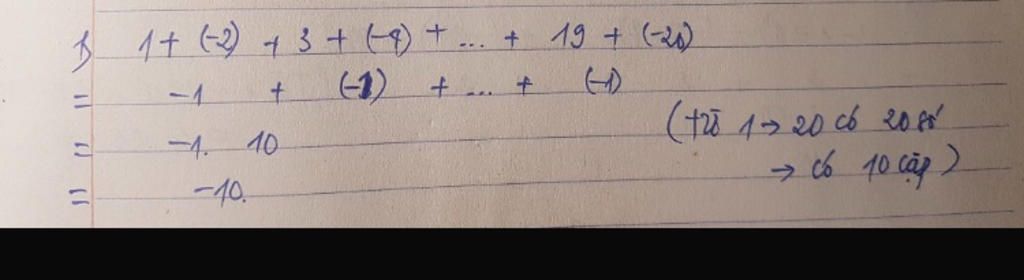 1) 1 + (-2) + 3 + (-4) + ... + 19 + (-20)
= -1 + (-1) + ... + (-1)
= -1. 10 (từ 1 → 20 có 20 số
→ có 10 cặp)
= -10.